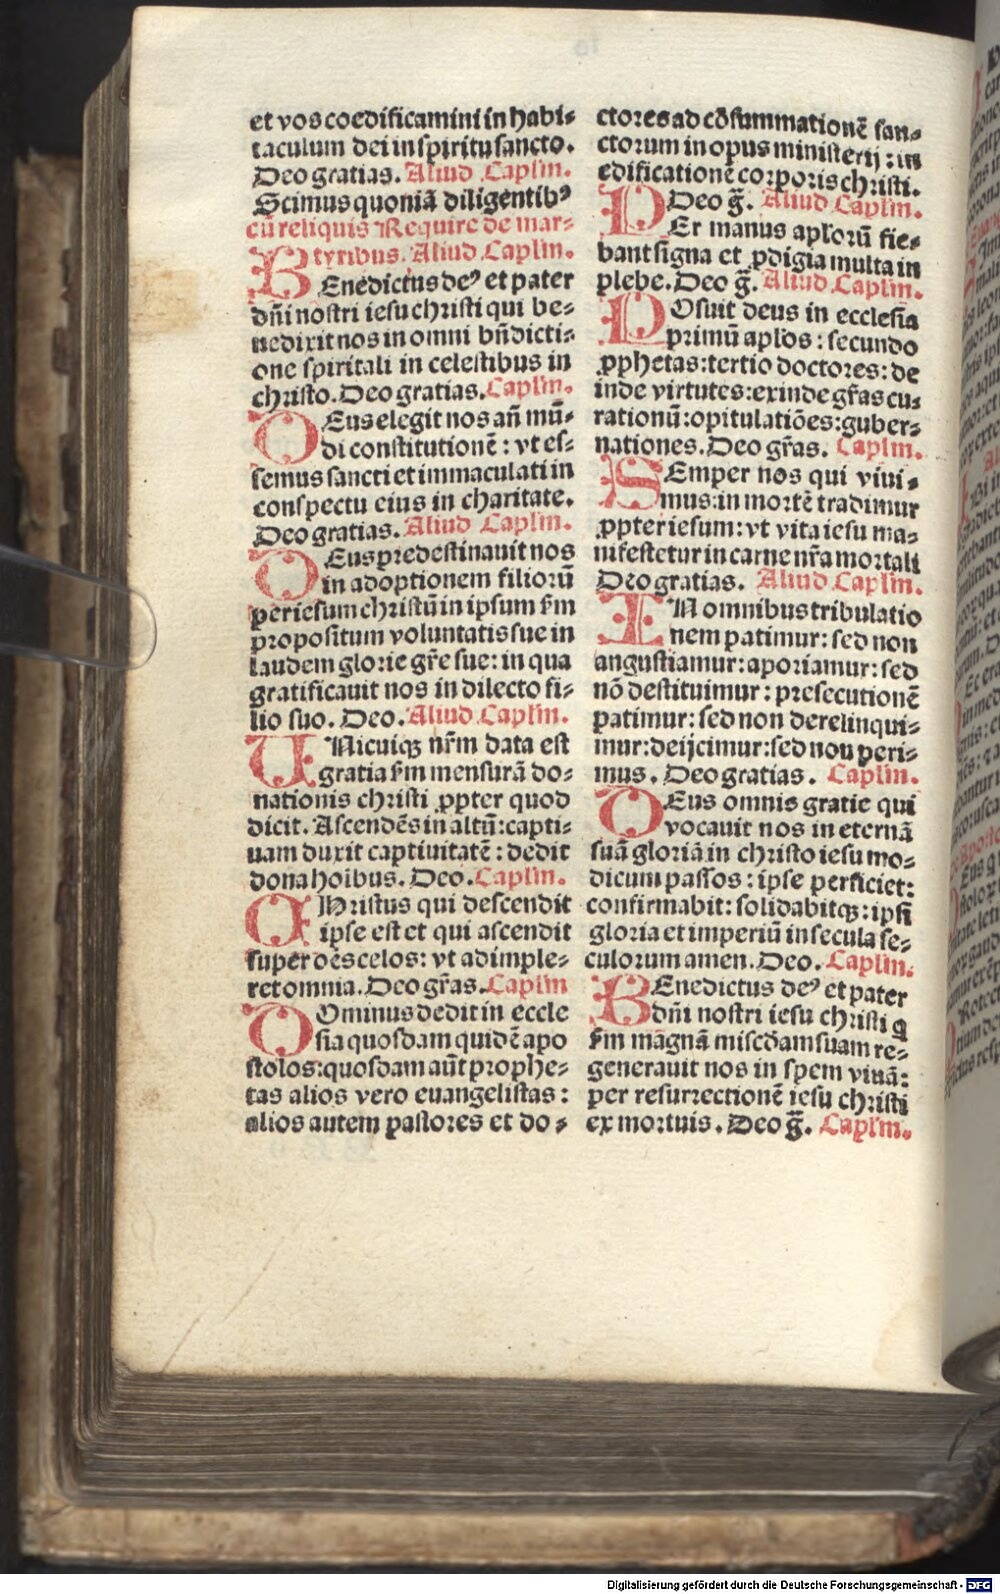 et vos coedificamini in habi⸗
taculum dei in spiritu sancto.
Deo gratias. Aliud Caplm.
Scimus quoniā diligentibꝰ
cū reliquis Require de mar⸗
tyribus. Aliud Caplm.
BEnedictus deꝰ et pater
dn̄i nostri iesu christi qui be⸗
nedixit nos in omni bn̄dicti⸗
one spiritali in celestibus in
christo. Deo gratias. Caplm.
DEus elegit nos añ mū⸗
di constitutionē : vt es⸗
semus sancti et immaculati in
conspectu eius in charitate.
Deo gratias. Aliud Caplm.
DEus predestinauit nos
in adoptionem filiorū
per iesum christū in ipsum ẜm
propositum voluntatis sue in
laudem glorie gr̄e sue: in qua
gratificauit nos in dilecto fi⸗
lio suo. Deo. Aliud Caplm.
UNicuiqꝫ nr̄m data est
gratia ẜm mensurā do⸗
nationis christi ꝓpter quod
dicit. Ascendēs in altū: capti⸗
uam duxit captiuitatē : dedit
dona hoibus. Deo. Caplm.
CHristus qui descendit
ipse est et qui ascendit
super oēs celos: vt adimple⸗
ret omnia. Deo gr̄as. Caplm
DOminus dedit in eccle
sia quosdam quidē apo
stolos: quosdam aūt prophe⸗
tas alios vero euangelistas :
alios autem pastores et do⸗
ctores ad cōsummationē san⸗
ctorum in opus ministerij : in
edificationē corporis christi.
Deo g̅. Aliud Caplm.
PEr manus aplorū fie⸗
bant signa et ꝓdigia multa in
plebe. Deo g̅. Aliud Caplm.
POsuit deus in ecclesia
primū aplos : secundo
ꝓphetas: tertio doctores: de
inde virtutes: exinde gr̄as cu⸗
rationū: opitulatiōes: guber⸗
nationes. Deo gr̄as. Caplm.
SEmper nos qui viui⸗
mus: in mortē tradimur
ꝓpter iesum: vt vita iesu ma⸗
nifestetur in carne nr̄a mortali
Deo gratias. Aliud Caplm.
IN omnibus tribulatio
nem patimur: sed non
angustiamur: aporiamur: sed
nō destituimur : presecutionē
patimur: sed non derelinqui⸗
mur: deijcimur: sed non peri⸗
mus. Deo gratias. Caplm.
DEus omnis gratie qui
vocauit nos in eternā
suā gloriā in christo iesu mo⸗
dicum passos : ipse perficiet:
confirmabit: solidabitqꝫ: ipsi
gloria et imperiū in secula se⸗
culorum amen. Deo. Caplm.
BEnedictus deꝰ et pater
dn̄i nostri iesu christi q
ẜm magnā miscd̄am suam re⸗
generauit nos in spem viuā:
per resurrectionē iesu christi
ex mortuis. Deo g̅. Caplm.
Digitalisierung gefördert durch die Deutsche Forschungsgemeinschaft - DFG